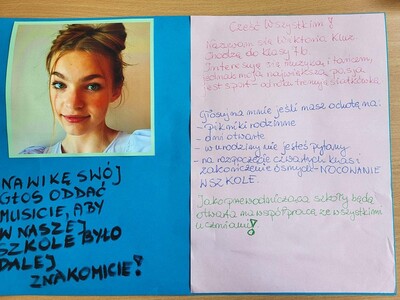 NA WIKĘ SWÓJ
GŁOS ODDAĆ
MUSICIE, ABY
W NASZEJ
SZKOLE BYŁO
DALEJ
ZNAKOMICIE!
Cześć Wszystkim!
Nazywam się Wiktoria
Chodzę do klasy 7b
Interesuję się muzyką i tańcem,
jednak moją największą pasją
jest sport - od lat trenuję siatkówkę
Głosuj na mnie jeśli masz ochotę na:
- Pikniki rodzinne
- dni otwarte
- w urodziny nie jesteś pytany
- na rozpoczęcie czwartych klas i
zakończenie ósmych - NOCOWANIE
W SZKOLE.
Jako przewodnicząca szkoły będę
otwarta na współpracę ze wszystkimi
uczniami!